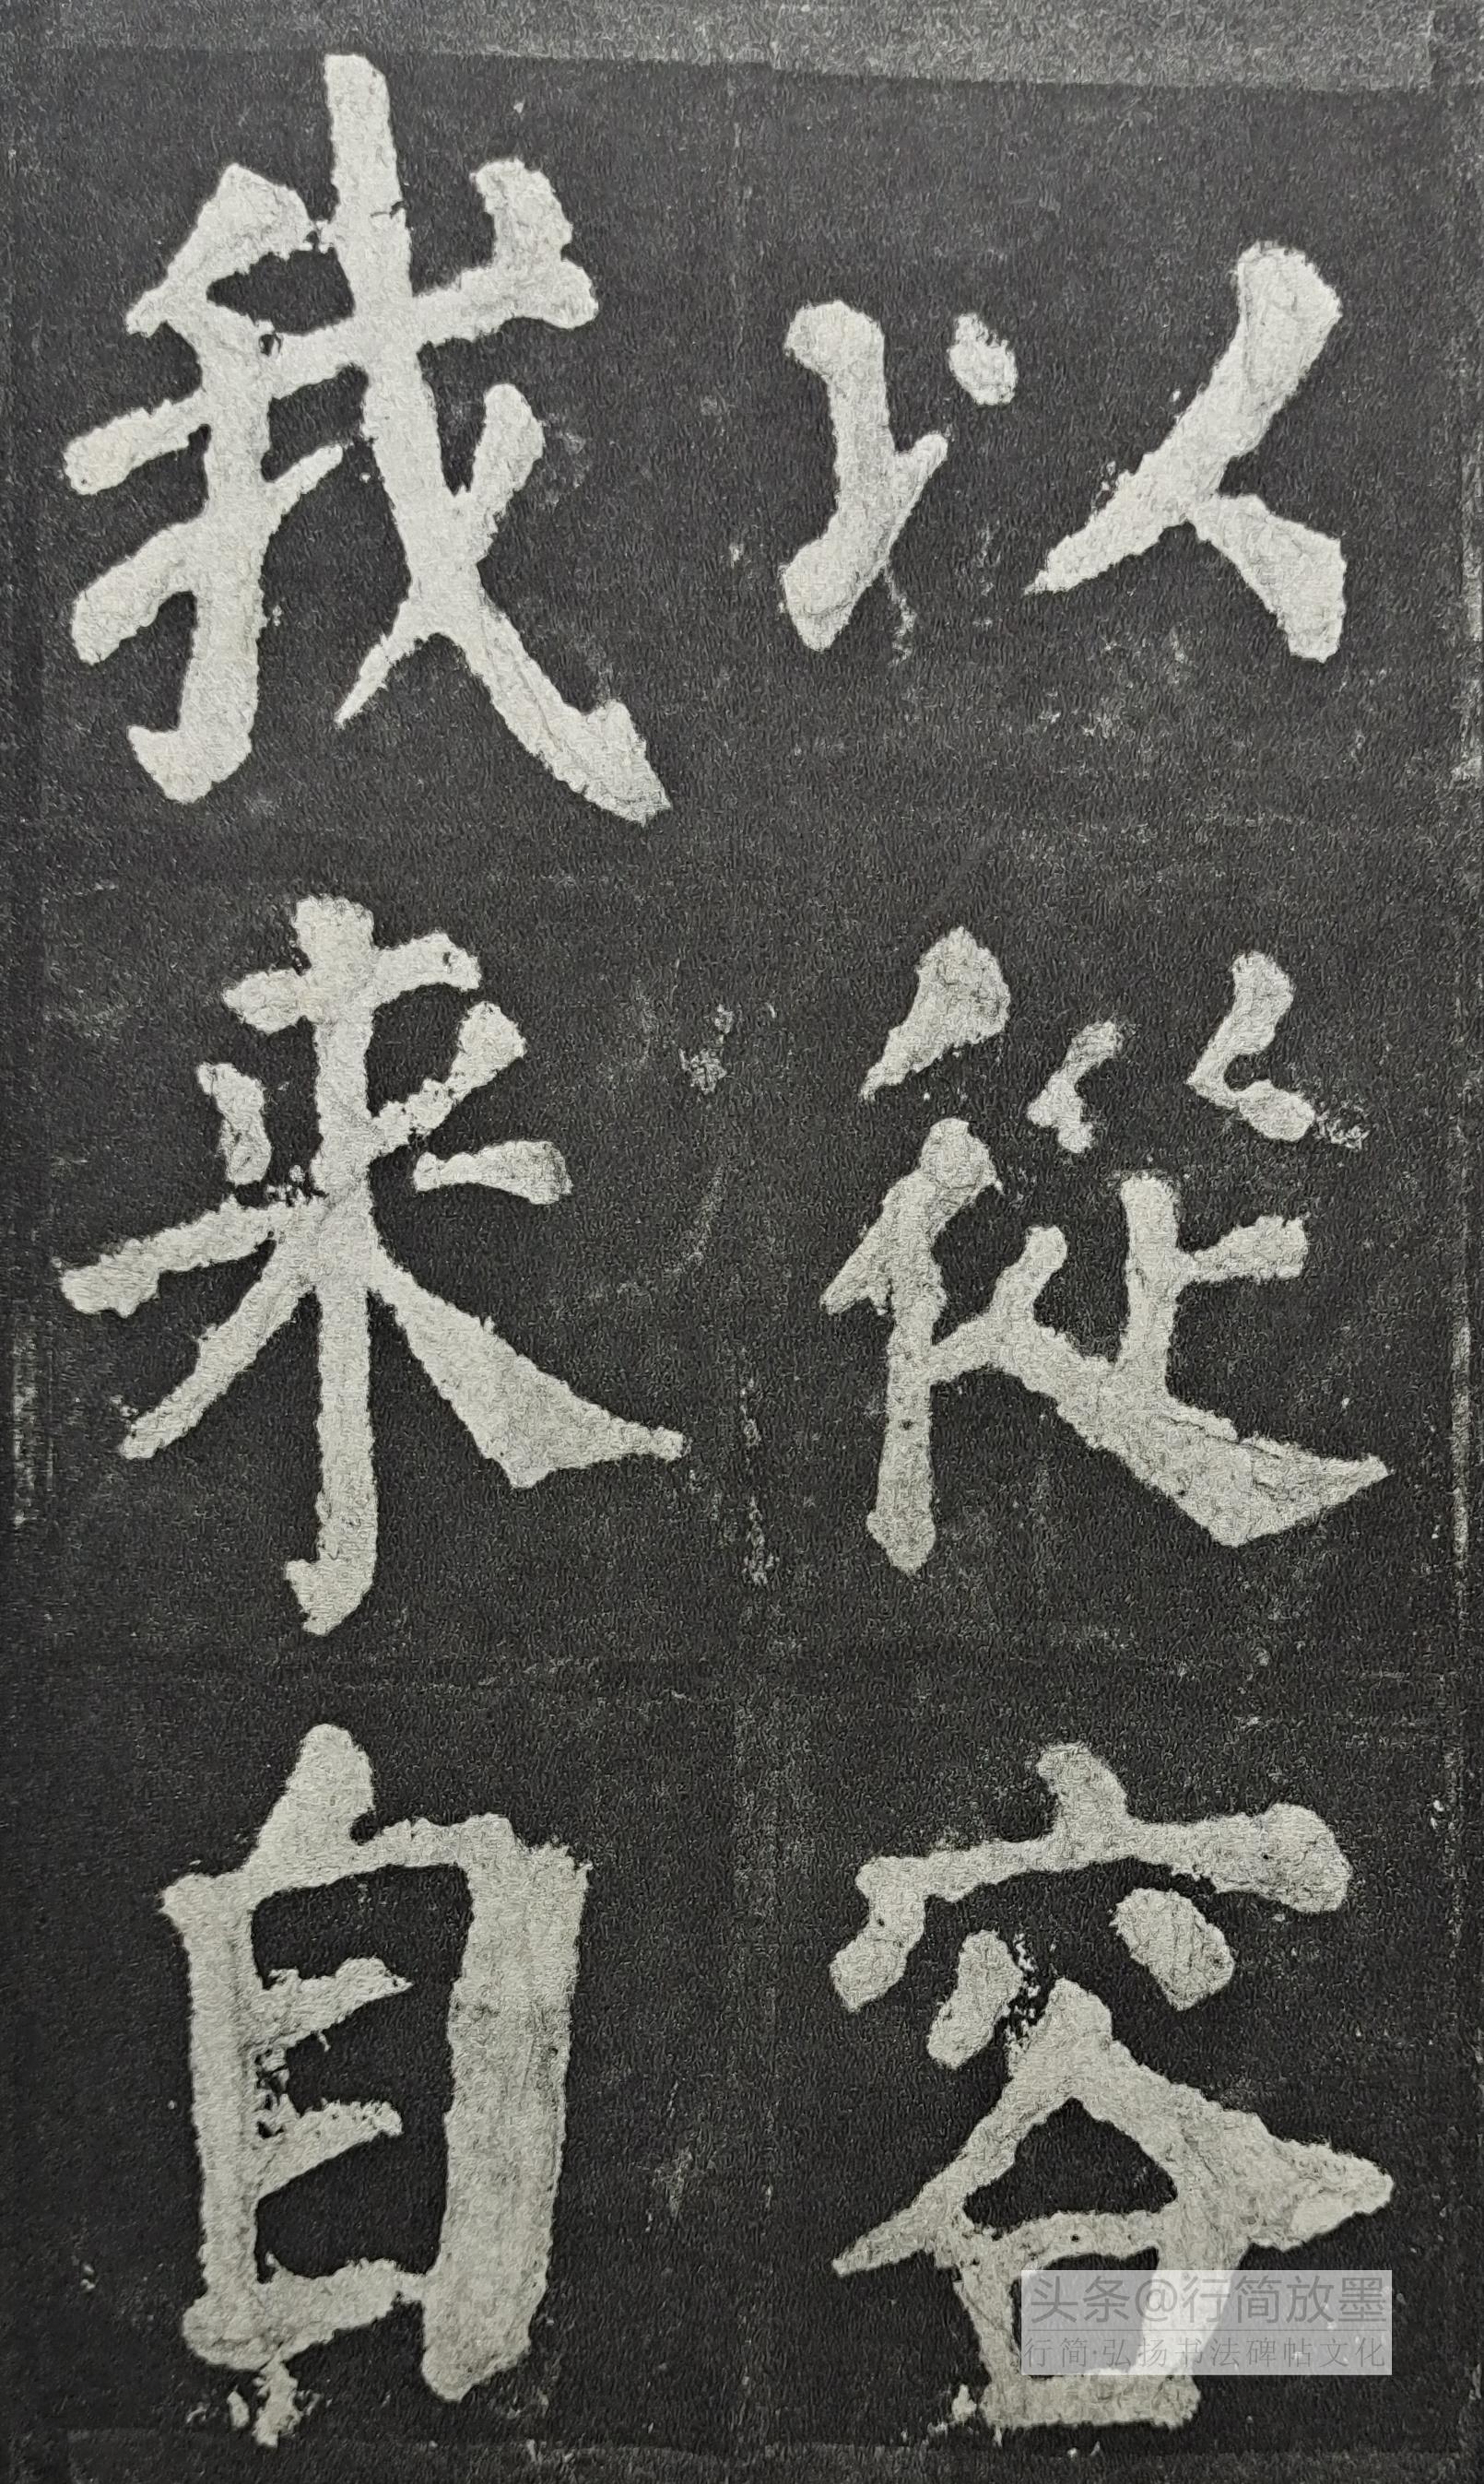 以從容
我来自
头条@行简放墨
行简·弘扬书法碑帖文化